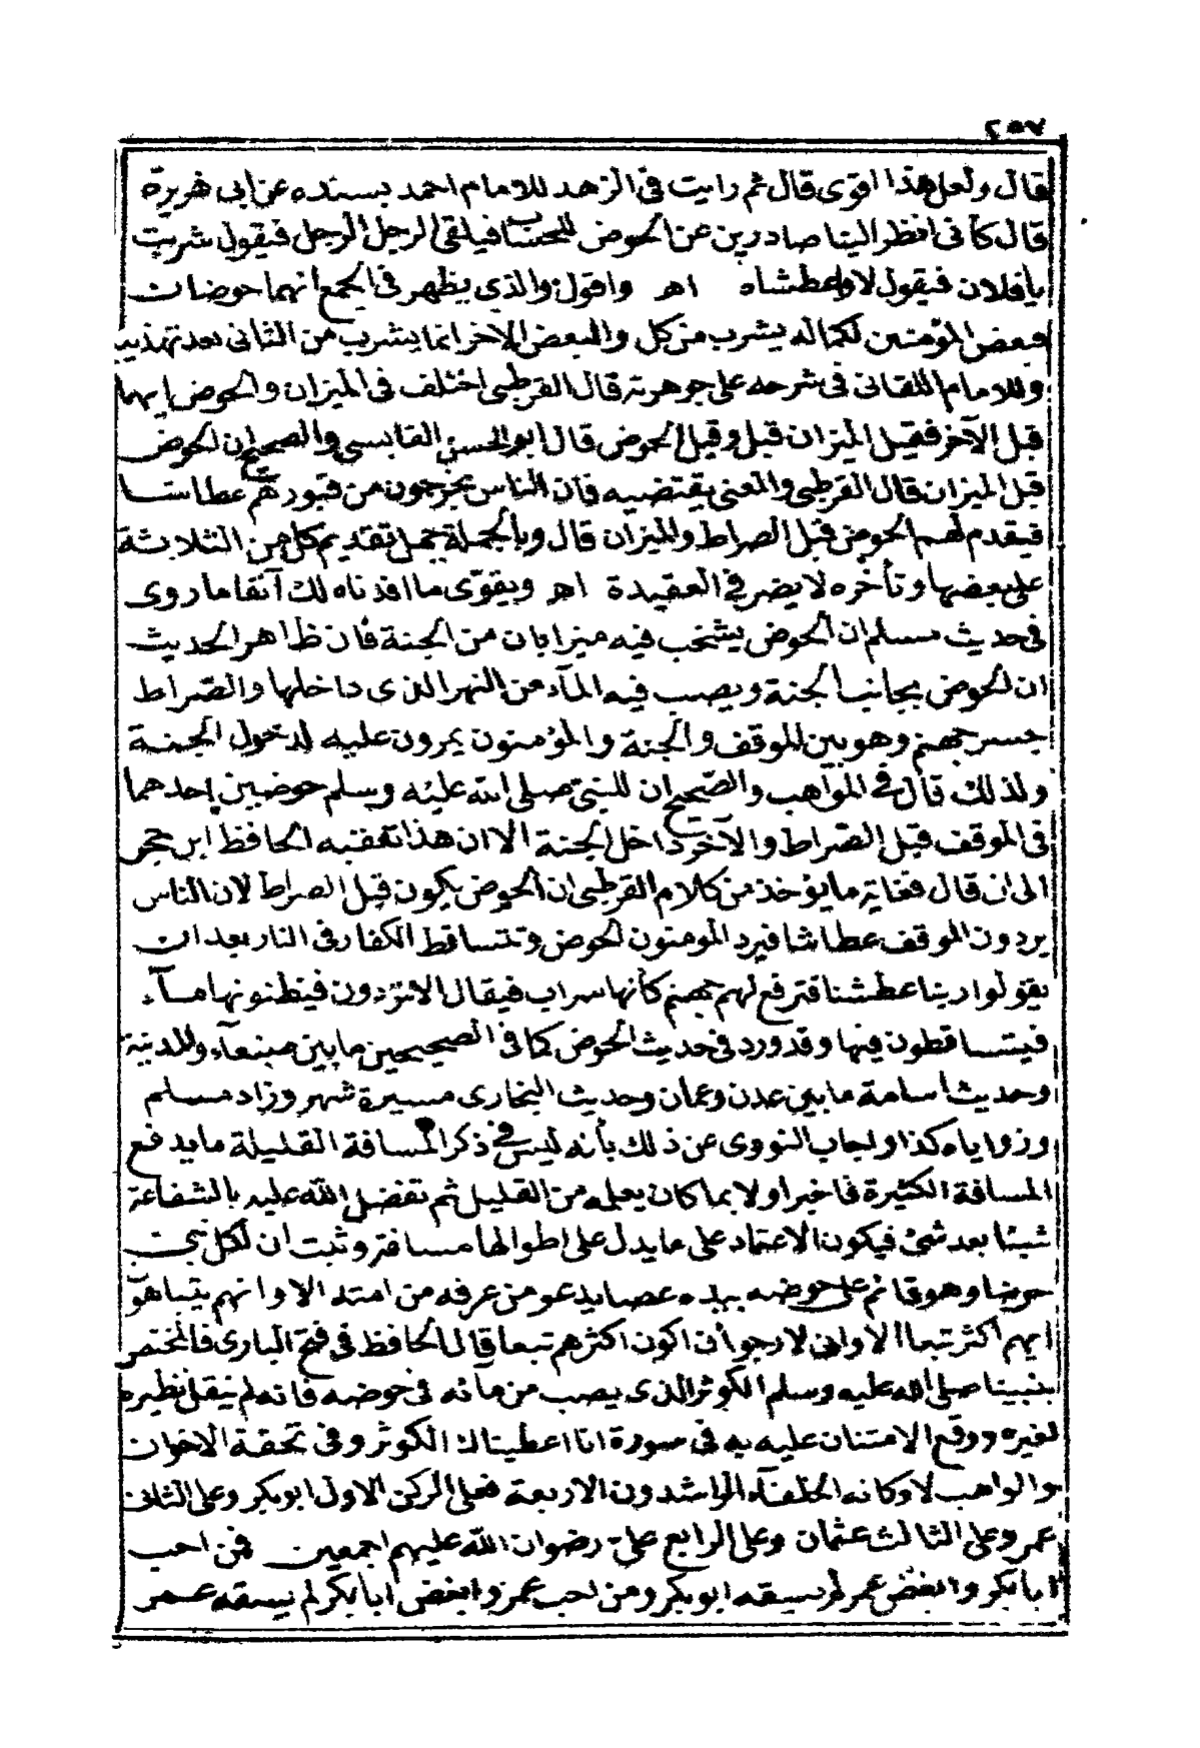 ٢٥٧
قال ولعل هذا اقوى قال ثم رايت في الزهد للامام احمد بسنده عن ابى هريرة
قال كأنى انظر الينا صادرين عن الحوض للحساب فيلقى الرجل الرجل فيقول شربت
يا فلان فيقول لا واعطشاه اهـ واقول والذى يظهر فى الجمع انهما حوضان
فبعض المؤمنين لكماله يشرب من كل والبعض الاخر انما يشرب من الثانى بعد تهذيب
وللامام اللقانى فى شرحه على جوهرته قال القرطبى اختلف فى الميزان والحوض ايهما
قبل الآخر فقيل الميزان قبل وقيل الحوض قال ابو الحسن القابسى والصحيح ان الحوض
قبل الميزان قال القرطبى والمعنى يقتضيه فان الناس يخرجون من قبورهم عطاشا
فيقدم لهم الحوض قبل الصراط والميزان قال وبالجملة تقديم كل من الثلاثة
على بعضها وتأخره لا يضر في العقيدة اهـ ويقوّى ما افدناه لك آنفا ما روى
فى حديث مسلم ان الحوض يشخب فيه ميزابان من الجنة فان ظاهر الحديث
ان الحوض بجانب الجنة ويصب فيه المآء من النهر الذى داخلها والصّراط
جسر جهنم وهو بين الموقف والجنة والمؤمنون يمرون عليه لدخول الجنة
ولذلك قال فى المواهب والصّحيح ان للنبىّ صلى الله عليه وسلم حوضين احدهما
فى الموقف قبل الصّراط والآخر داخل الجنة الا ان هذا تعقبه الحافظ ابن حجر
الى ان قال فغاية ما يؤخذ من كلام القرطبى ان الحوض يكون قبل الصراط لان الناس
يردون الموقف عطاشا فيرد المؤمنون الحوض وتتساقط الكفار فى النار بعد ان
يقولوا ربنا عطشنا فترفع لهم جهنم كأنها سراب فيقال الا تردون فيظنونها مآء
فيتساقطون فيها وقد ورد فى حديث الحوض كما فى الصحيحين ما بين صنعآء والمدينة
وحديث اسامة ما بين عدن وعمان وحديث البخارى مسيرة شهر وزاد مسلم
وزواياه كذا واجاب النووى عن ذلك بأنه ليس في ذكر المسافة القليلة ما يدفع
المسافة الكثيرة فاخبر اولا بما كان يعلمه من القليل ثم تفضل الله عليه بالشفاعة
شيئا بعد شئ فيكون الاعتماد على ما يدل على اطوالها مسافة وثبت ان لكل نبى
حوضا وهو قائم على حوضه بيده عصا يدعو من عرفه من امته الا وانهم يتباهوّ
ايهم اكثر تبعا الا وانى لارجو أن اكون اكثرهم تبعا قال الحافظ فى فتح البارى فالمختص
بنبينا صلى الله عليه وسلم الكوثر الذى يصب من مآئه فى حوضه فانه لم ينقل نظيره
لغيره ووقع الامتنان عليه به فى سورة انا اعطيناك الكوثر وفى تحفة الاخوان
والواهب لاركانه الخلفآء الراشدون الاربعة فعلى الركن الاول ابو بكر وعلى الثانى
عمر وعلى الثالث عثمان وعلى الرابع علىّ رضوان الله عليهم اجمعين فمن احب
ابا بكر وابغض عمر لم يسقه ابو بكر ومن احب عمر وابغض ابا بكر لم يسقه عمر